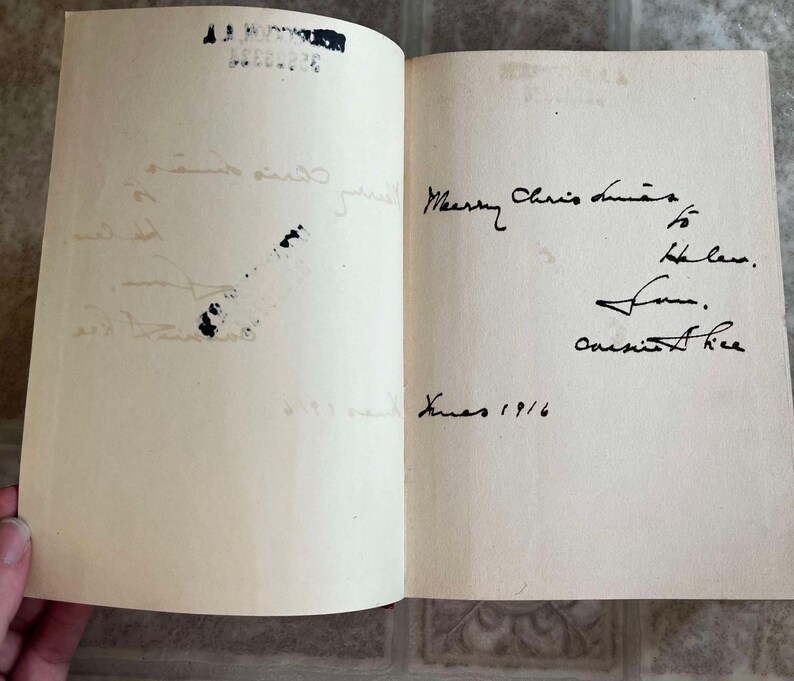 Merry Christmas
to
Helen.
from.
Cousin Alice
Xmas 1916